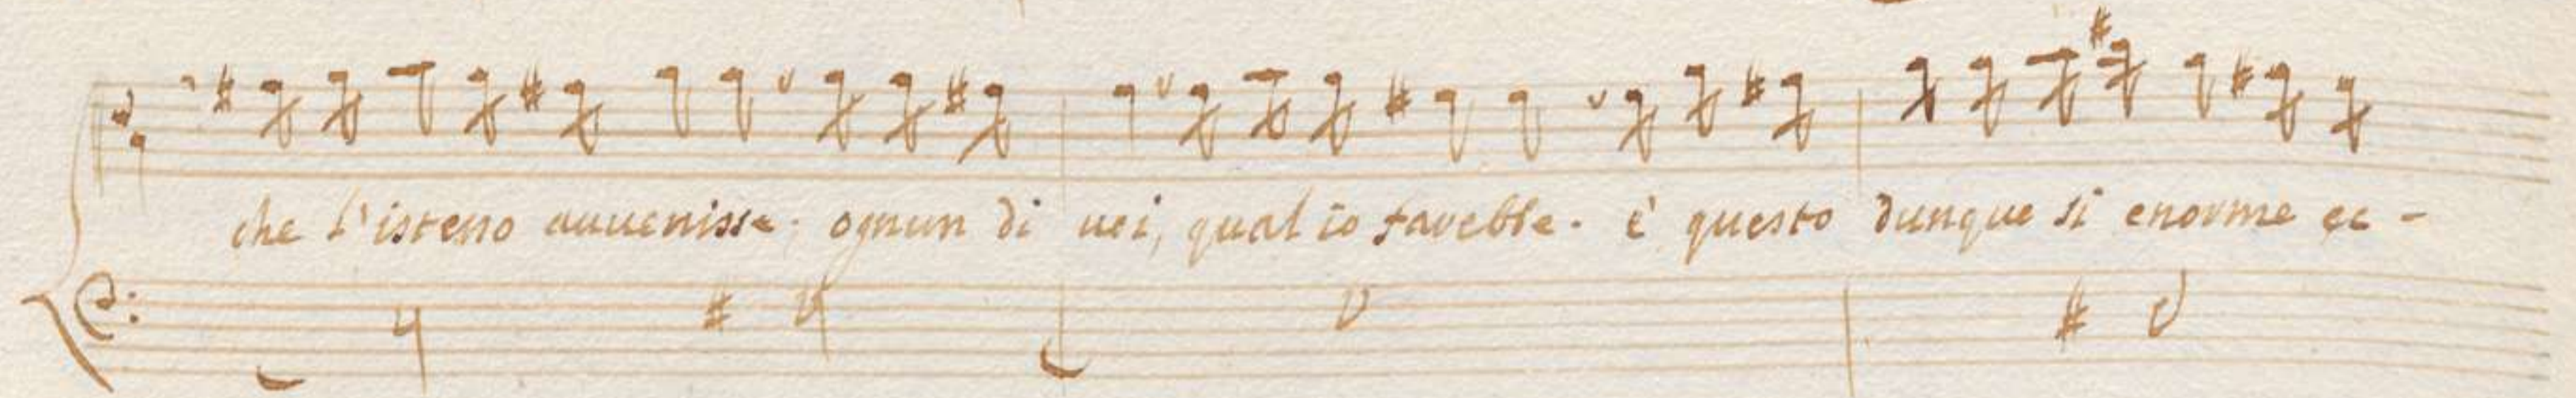 che l'istesso auuenisse. ognun di uoi, qual io farebbe. è questo dunque si enorme ec -